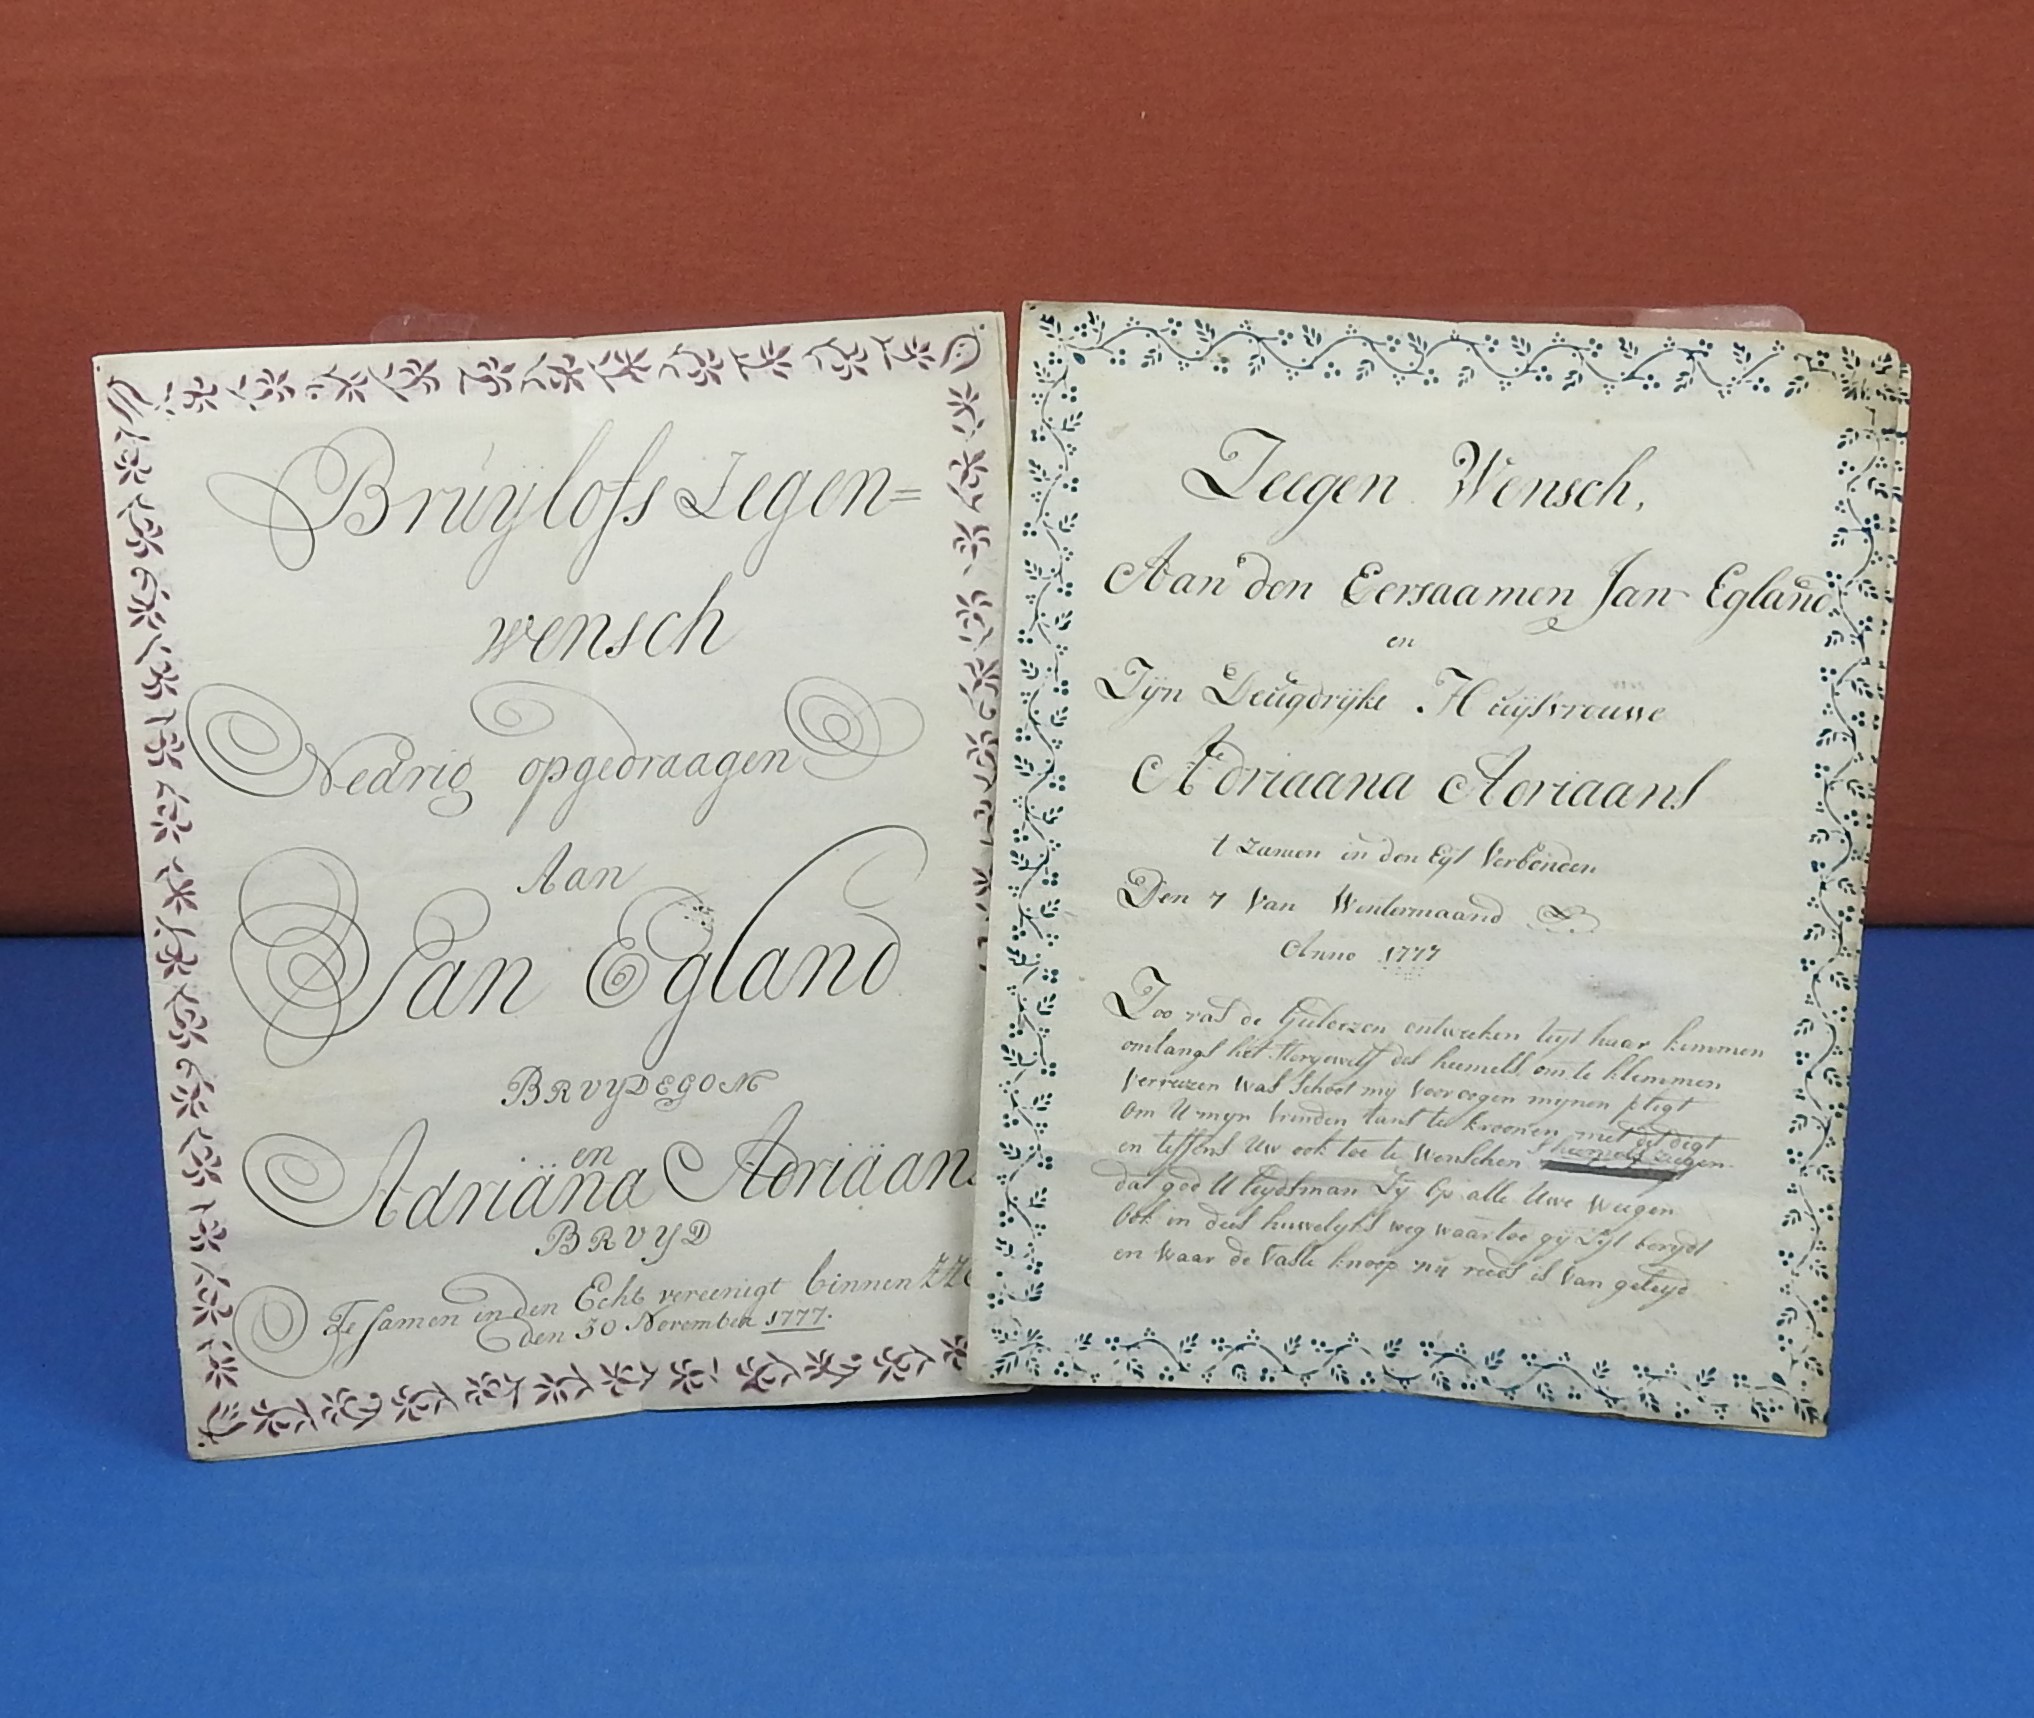 Bruÿlofs Zegen=
wensch
Nedrig opgedraagen
Aan
Jan Egland
BRUYDEGOM
en
Adriäna Adriäans
BRUYD
Te samen in den Echt vereenigt binnen
den 30 November 1777.
Zeegen Wensch,
Aan den Eersaamen Jan Egland
en
Zÿn Deugdrÿke Huÿsvrouwe
Adriaana Adriaans
t zamen in den Egt Verbonden
Den 7 Van Wentermaand
Anno 1777
Zoo ras de Gulde zon ontweken liet haar kimmen
omlangs het stergewelf des heemels om te klemmen
Verreezen was schoot my voor oogen mynen pligt
om U myn Vrinden tans te kroonen met dit digt
en teffens Uw ook toe te Wenschen s'heemels zegen
dat god U leydsman Zy op alle Uwe Weegen
Ook in dees huwelyks weg waartoe gÿ Zyt berydt
en waar de Vaste knoop nu reeds is Van geleyd